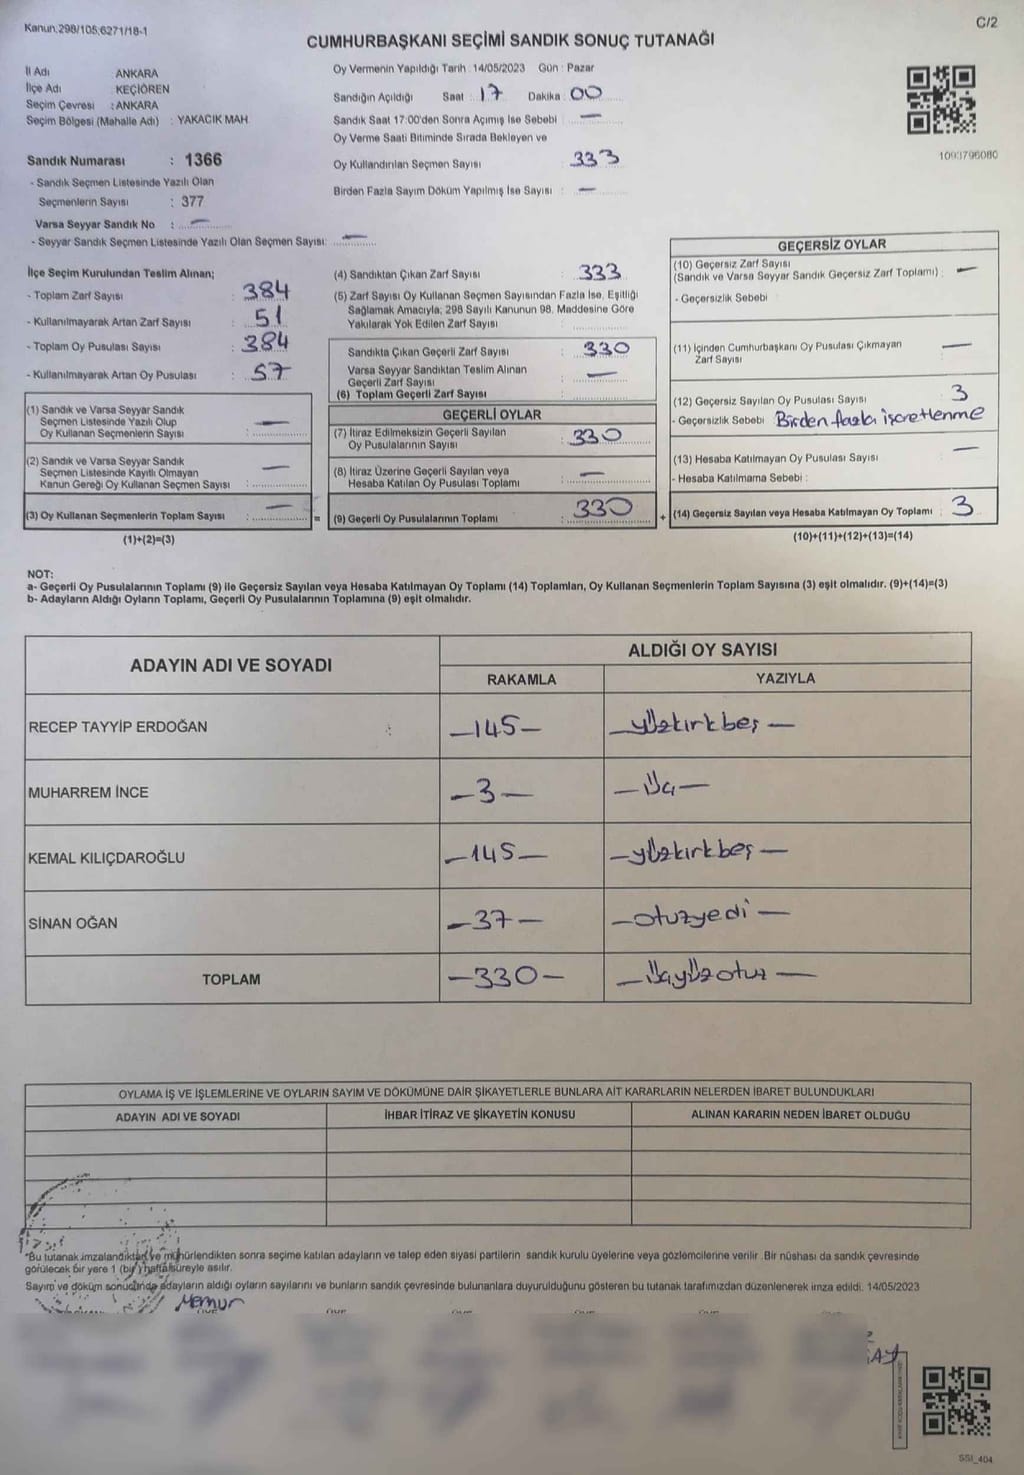 Kanun:298/105;6271/18-1
C/2
CUMHURBAŞKANI SEÇİMİ SANDIK SONUÇ TUTANAĞI
İl Adı ANKARA
İlçe Adı : KEÇİÖREN
Seçim Çevresi : ANKARA
Seçim Bölgesi (Mahalle Adı) : YAKACIK MAH.
Sandık Numarası : 1366
- Sandık Seçmen Listesinde Yazılı Olan
Seçmenlerin Sayısı : 377
Varsa Seyyar Sandık No : —
- Seyyar Sandık Seçmen Listesinde Yazılı Olan Seçmen Sayısı: —
Oy Vermenin Yapıldığı Tarih : 14/05/2023 Gün : Pazar
Sandığın Açıldığı Saat : 17 Dakika : 00
Sandık Saat 17:00'den Sonra Açımış İse Sebebi : —
Oy Verme Saati Bitiminde Sırada Bekleyen ve
Oy Kullandırılan Seçmen Sayısı : 333
Birden Fazla Sayım Döküm Yapılmış İse Sayısı : —
1093796080
İlçe Seçim Kurulundan Teslim Alınan;
- Toplam Zarf Sayısı : 384
- Kullanılmayarak Artan Zarf Sayısı : 51
- Toplam Oy Pusulası Sayısı : 384
- Kullanılmayarak Artan Oy Pusulası : 57
(1) Sandık ve Varsa Seyyar Sandık
Seçmen Listesinde Yazılı Olup
Oy Kullanan Seçmenlerin Sayısı : —
(2) Sandık ve Varsa Seyyar Sandık
Seçmen Listesinde Kayıtlı Olmayan
Kanun Gereği Oy Kullanan Seçmen Sayısı : —
(3) Oy Kullanan Seçmenlerin Toplam Sayısı : — =
(1)+(2)=(3)
(4) Sandıktan Çıkan Zarf Sayısı : 333
(5) Zarf Sayısı Oy Kullanan Seçmen Sayısından Fazla İse, Eşitliği
Sağlamak Amacıyla; 298 Sayılı Kanunun 98. Maddesine Göre
Yakılarak Yok Edilen Zarf Sayısı :
Sandıkta Çıkan Geçerli Zarf Sayısı : 330
Varsa Seyyar Sandıktan Teslim Alınan
Geçerli Zarf Sayısı : —
(6) Toplam Geçerli Zarf Sayısı :
GEÇERLİ OYLAR
(7) İtiraz Edilmeksizin Geçerli Sayılan
Oy Pusulalarının Sayısı : 330
(8) İtiraz Üzerine Geçerli Sayılan veya
Hesaba Katılan Oy Pusulası Toplamı : —
(9) Geçerli Oy Pusulalarının Toplamı : 330 +
GEÇERSİZ OYLAR
(10) Geçersiz Zarf Sayısı
(Sandık ve Varsa Seyyar Sandık Geçersiz Zarf Toplamı) : —
- Geçersizlik Sebebi :
(11) İçinden Cumhurbaşkanı Oy Pusulası Çıkmayan
Zarf Sayısı : —
(12) Geçersiz Sayılan Oy Pusulası Sayısı : 3
- Geçersizlik Sebebi : Birden fazla işcretlenme
(13) Hesaba Katılmayan Oy Pusulası Sayısı : —
- Hesaba Katılmama Sebebi :
(14) Geçersiz Sayılan veya Hesaba Katılmayan Oy Toplamı : 3
(10)+(11)+(12)+(13)=(14)
NOT:
a- Geçerli Oy Pusulalarının Toplamı (9) ile Geçersiz Sayılan veya Hesaba Katılmayan Oy Toplamı (14) Toplamları, Oy Kullanan Seçmenlerin Toplam Sayısına (3) eşit olmalıdır. (9)+(14)=(3)
b- Adayların Aldığı Oyların Toplamı, Geçerli Oy Pusulalarının Toplamına (9) eşit olmalıdır.
ADAYIN ADI VE SOYADI
ALDIĞI OY SAYISI
RAKAMLA YAZIYLA
RECEP TAYYİP ERDOĞAN —145— —yüzkırkbeş—
MUHARREM İNCE —3— —üç—
KEMAL KILIÇDAROĞLU —145— —yüzkırkbeş—
SİNAN OĞAN —37— —otuzyedi—
TOPLAM —330— —üçyüzotuz—
OYLAMA İŞ VE İŞLEMLERİNE VE OYLARIN SAYIM VE DÖKÜMÜNE DAİR ŞİKAYETLERLE BUNLARA AİT KARARLARIN NELERDEN İBARET BULUNDUKLARI
ADAYIN ADI VE SOYADI İHBAR İTİRAZ VE ŞİKAYETİN KONUSU ALINAN KARARIN NEDEN İBARET OLDUĞU
*Bu tutanak imzalandıktan ve mühürlendikten sonra seçime katılan adayların ve talep eden siyasi partilerin sandık kurulu üyelerine veya gözlemcilerine verilir. Bir nüshası da sandık çevresinde
görülecek bir yere 1 (bir) hafta süreyle asılır.
Sayım ve döküm sonucunda adayların aldığı oyların sayılarını ve bunların sandık çevresinde bulunanlara duyurulduğunu gösteren bu tutanak tarafımızdan düzenlenerek imza edildi. 14/05/2023
Memur
SSI_404